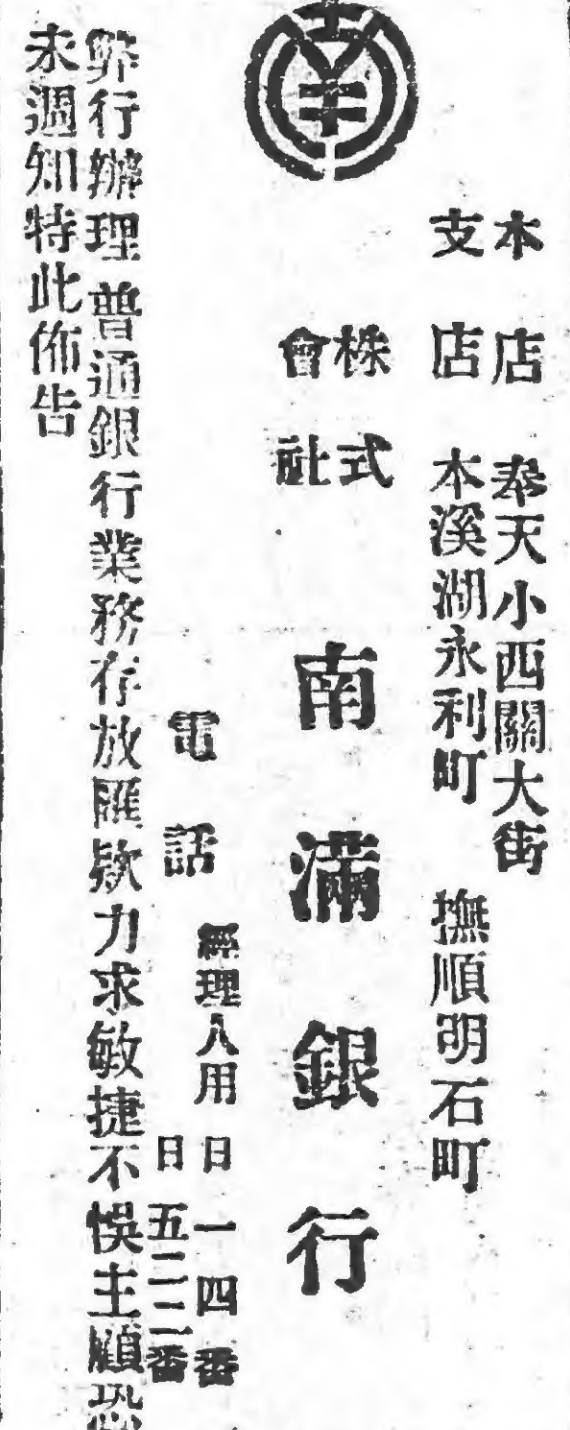 本店 奉天小西關大街
支店 本溪湖永利町 撫順明石町
株式
會社
南滿銀行
電話
經理人用 日一四番
日五二二番
弊行辦理普通銀行業務存放匯欵力求敏捷不悞主顧恐
未週知特此佈告